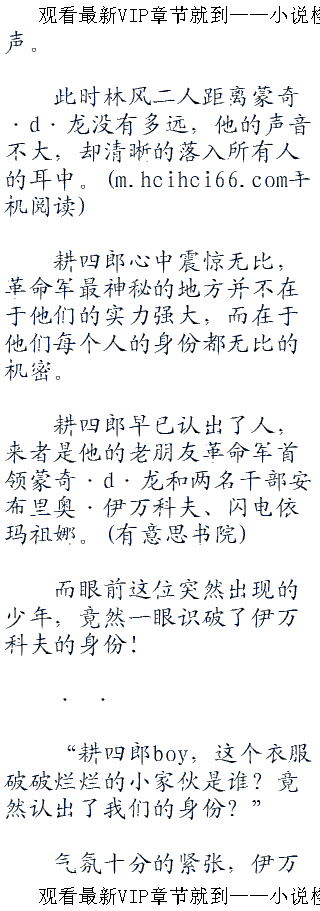 观看最新VIP章节就到——小说
声。
此时林风二人距离蒙奇
·d·龙没有多远，他的声音
不大，却清晰的落入所有人
的耳中。(m.hcihci66.com手
机阅读)
耕四郎心中震惊无比，
革命军最神秘的地方并不在
于他们的实力强大，而在于
他们每个人的身份都无比的
机密。
耕四郎早已认出了人，
来者是他的老朋友革命军首
领蒙奇·d·龙和两名干部安
布里奥·伊万科夫、闪电依
玛祖娜。(有意思书院)
而眼前这位突然出现的
少年，竟然一眼识破了伊万
科夫的身份！
· ·
“耕四郎boy，这个衣服
破破烂烂的小家伙是谁？竟
然认出了我们的身份？”
气氛十分的紧张，伊万
观看最新VIP章节就到——小说